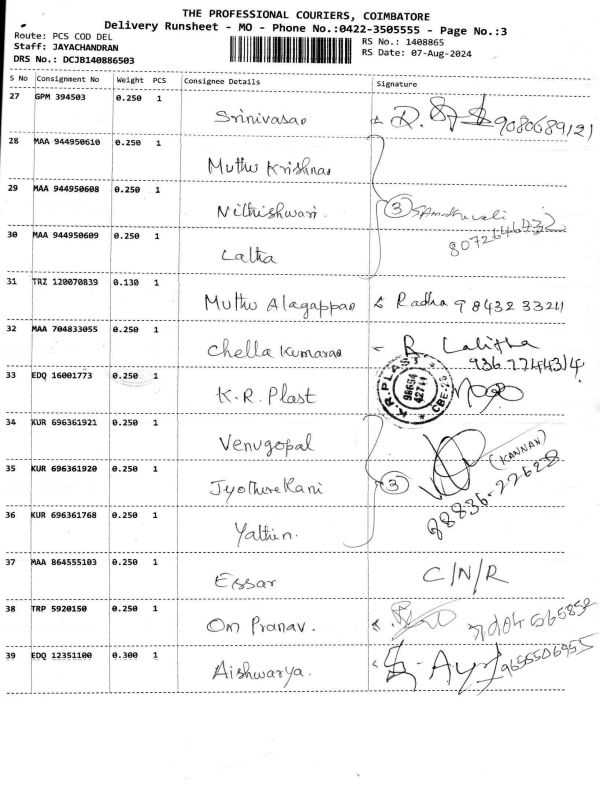 THE PROFESSIONAL COURIERS, COIMBATORE
Delivery Runsheet - MO - Phone No.:0422-3505555 - Page No.:3
Route: PCS COD DEL
Staff: JAYACHANDRAN
DRS No.: DCJB140886503
RS No.: 1408865
RS Date: 07-Aug-2024
S No Consignment No Weight PCS Consignee Details Signature
27 GPM 394503 0.250 1 Srinivasan 9080689121
28 MAA 944950610 0.250 1 Muthu Krishnan
29 MAA 944950608 0.250 1 Nithishwari. 3
30 MAA 944950609 0.250 1 Latha
31 TRZ 120070839 0.130 1 Muthu Alagappan Radha 9843233211
32 MAA 704833055 0.250 1 Chella Kumaran R Lalitha
33 EDQ 16001773 0.250 1 K.R. Plast K.R.PLAST
34 KUR 696361921 0.250 1 Venugopal (KANNAN)
35 KUR 696361920 0.250 1 3 98836-22628
36 KUR 696361768 0.250 1 Yathin.
37 MAA 864555103 0.250 1 Essar C/N/R
38 TRP 5920150 0.250 1 Om Pranav.
39 EDQ 12351100 0.300 1 Aishwarya. 9655506955